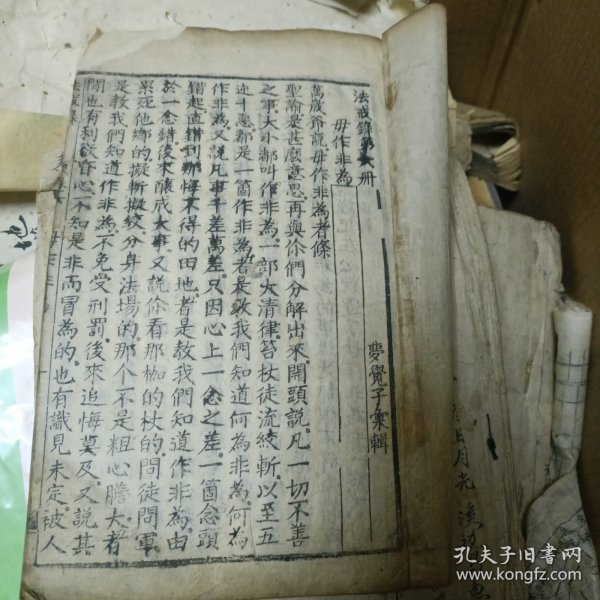 法戒錄第六冊
夢覺子彙輯
毋作非為
萬歲爺說毋作非為者條
聖諭是甚麽意思再與你們分解出來開頭說凡一切不善
之事大小都叫作非為一部大清律笞杖徒流絞斬以至五
逆十惡都是一箇作非為者是教我們知道何為非為何為
作非為又說凡事千差萬差只因心上一念之差一箇念頭
錯起直錯到那悔不得的田地者是教我們知道作非為由
於一念錯後來釀成大事又說你看那枷的杖的問徒問軍
累死他鄉的擬斬擬絞分身法場的那个不是粗心膽大者
是教我們知道作非為不免受刑罰後來追悔莫及又說其
間也有利欲昏心不知是非而冒為的也有識見未定被人
法戒錄
毋作非為
七月光
孔夫子旧书网
www.kongfz.com